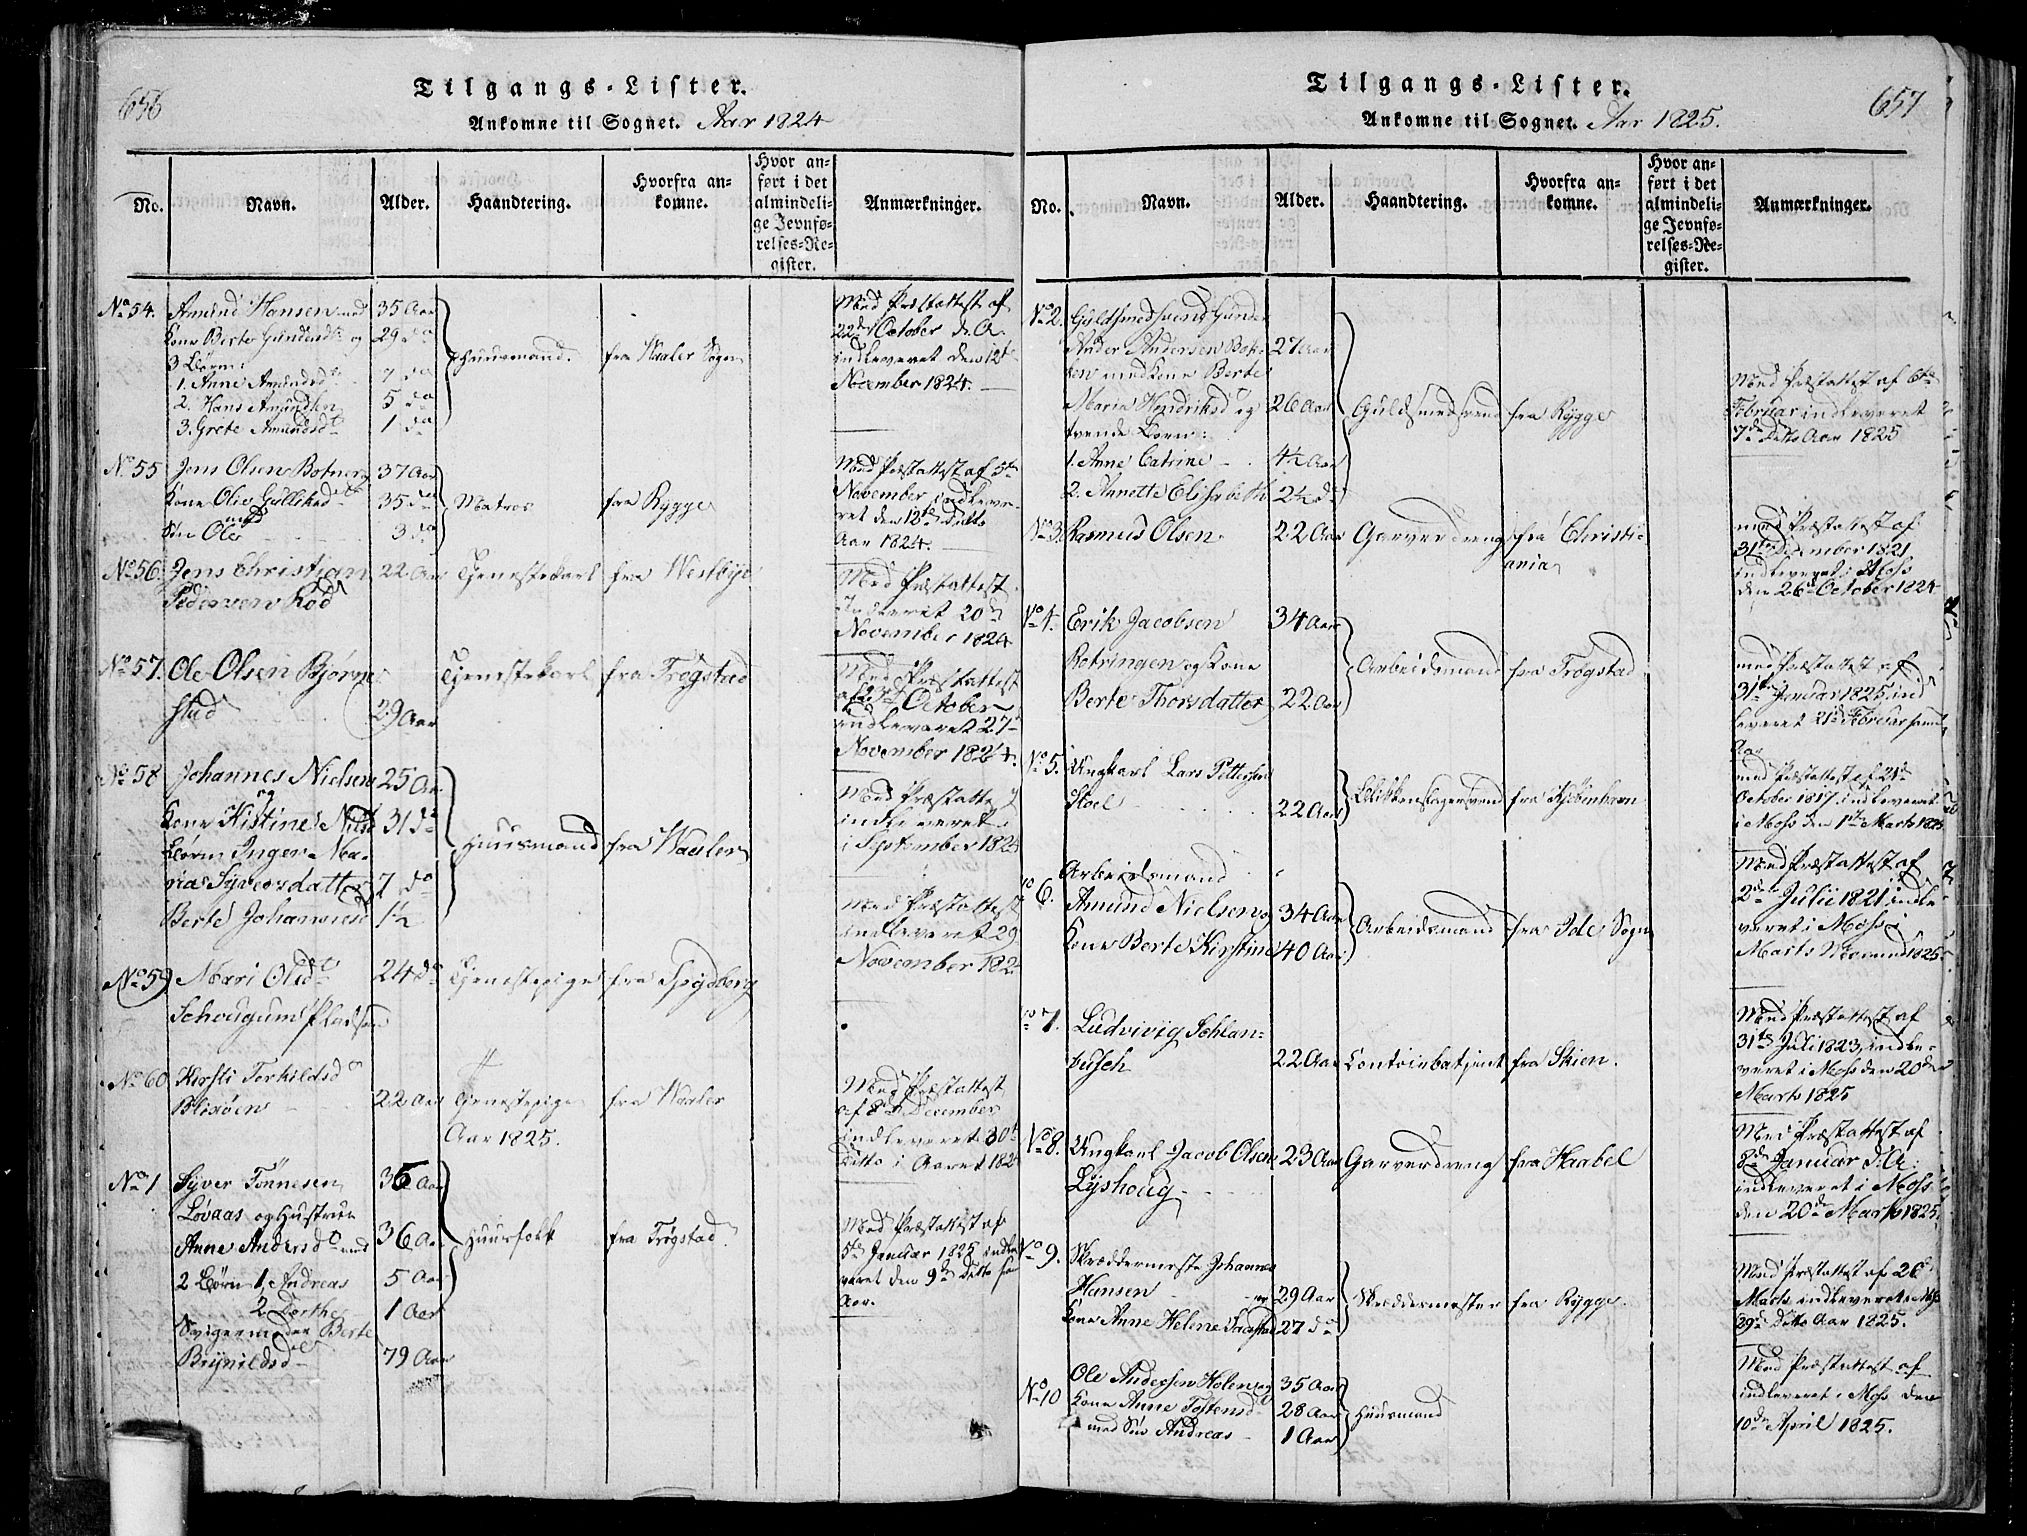 656
Tilgangs-Lister.
Ankomne til Sognet. Aar 1824
No. Navn. Alder. Haandtering. Hvorfra ankomne. Hvor anført i det almindelige Jevnførelses-Register. Anmærkninger.
No 54. Amund Hansen med 35 Aar
Kone Berte Gundersd og 29 do
3 Børn:
1. Anne Amundsd 7 do
2. Hans Amundsen 5 do
3. Grete Amundsd 1 do
Huusmand. fra Waaler Sogn
Med Præstattest af
22de October d. A.
indleveret den 12te
November 1824.
No 55 Jens Olsen Botner og 37 Aar
Kone Olia Gulliksd 35 do
med
Søn Ole 3 do
Matros fra Rygge
Med Præstattest af 5te
November indleve-
ret den 12te Ditto
Aar 1824.
No 56. Jens Christian 22 Aar Tjenestekarl fra Westbye
Pedersen Rød
Med Præstattest
indleveret 20de
November 1824
No 57. Ole Olsen Bjørne Tjenestekarl fra Trøgstad
stad 29 Aar
Med Præstattest
October
indleveret 27
November 1824.
No 58 Johannes Nielsen 25 Aar
og
Kone Kistine Niels 31 do
Børn Inger Ma-
ria Syversdatter 7 do
Berte Johannesd 1½
Huusmand fra Waaler
Med Præstattest
indleveret
i September 1824
Med Præstattest
indleveret 29
November 182
No 59 Mari Olsd 24 do Tjenestepige fra Spydberg
Schougum Pladsen
No 60 Kirsti Terkildsd
Blixøen 22 Aar Tjenestepige fra Waaler
Med Præstattest
af 8de December
indleveret 30te
Ditto i Aaret 182
Aar 1825.
No 1 Syver Tønnesen 36 Aar
Løvaas og Hustrue
Anne Andersd med 36 Aar
2 Børn 1, Andreas 5 Aar
2 Dorthe 1 Aar
Svigermoder Berte
Brynildsd 79 Aar
Huusfolk fra Trøgstad.
Med Præstattest af
5te Januar 1825 indle
veret den 9de Ditto
Aar.
657
Tilgangs-Lister.
Ankomne til Sognet. Aar 1825.
No. Navn. Alder. Haandtering. Hvorfra ankomne. Hvor anført i det almindelige Jevnførelses-Register. Anmærkninger.
No 2. Guldsmedsvend Gunder
Ander Andersen Bak- 27 Aar
ken med Kone Berte
Maria Hendriksd og 26 Aar
tvende Børn:
1. Anne Catrine 4½ Aar
2. Annette Elisabeth 2½ do
Guldsmedsvend fra Rygge
Med Præstattest af 6te
Februar indleveret
7de Ditto Aar 1825
No 3. Rasmus Olsen 22 Aar Garverdreng fra Christi-
ania
med Præstattest af
31te December 1821
indleveret i Moss
den 26de October 1824
No 4. Erik Jacobsen 34 Aar
Rotringen og Kone
Berte Thorsdatter 22 Aar
Arbeidsmand fra Trøgstad
med Præstattest af
31te Januar 1825 ind
leveret 21de Februar samme
Aar
No 5. Ungkarl Lars Petters
Stoel 22 Aar Blikkenslagersvend fra Kjøbenhavn
med Præstattest af 21de
October 1817 indleveret
i Moss den 1ste Marts 1825
No 6. Arbeidsmand
Amund Nielsen og 34 Aar
Kone Berte Kirstine 40 Aar
Arbeidsmand fra Ide Sogn
Med Præstattest af
2den Julii 1821 indle-
veret i Moss i
Marts Maaned 1825
No 7. Ludvivig Schlan-
busch 22 Aar Contoirbetjent fra Skien.
Med Præstattest af
31te Juli 1823, indle-
veret i Moss den 20de
Marts 1825
No 8. Ungkarl Jacob Olsen 23 Aar Garverdreng fra Haabel
Lyshoug
Med Præstattest af
8de Januar d. A.
indleveret i Moss
den 20de Marts 1825.
No 9. Skræddermester Johannes
Hansen og 29 Aar
Kone Anne Helene 27 do
Skreddermester fra Rygge.
Med Præstattest af 26de
Marts indleveret i Moss
29de Ditto Aar 1825.
No 10 Ole Andersen Holen og 35 Aar
Kone Anne Tostensd 28 Aar
med Søn Andreas 1 Aar
Huusmand
Med Præstattest af
indleveret i Moss den
10de April 1825.